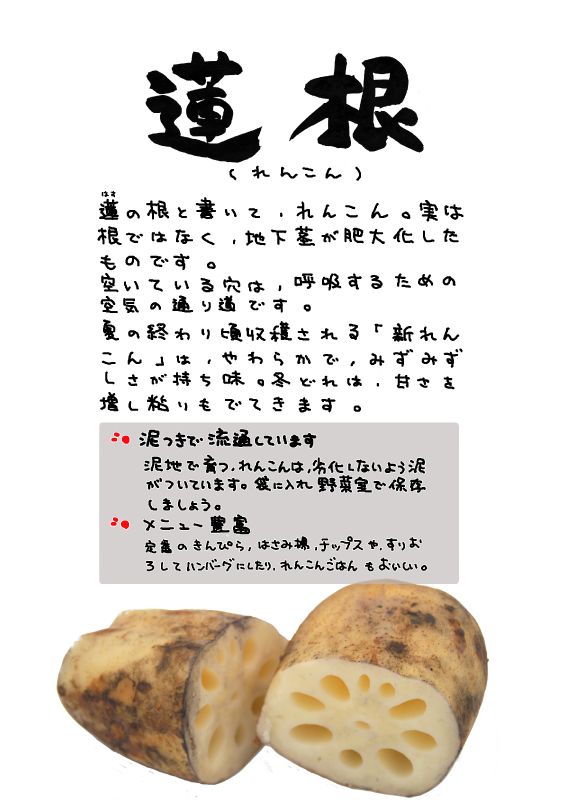 蓮根
(れんこん)
はす
蓮の根と書いて、れんこん。実は
根ではなく、地下茎が肥大化した
ものです。
空いている穴は、呼吸するための
空気の通り道です。
夏の終わり頃収穫される「新れん
こん」は、やわらかで、みずみず
しさが持ち味。冬どれは、甘さを
増し粘りもでてきます。
泥つきで流通しています
泥地で育つ、れんこんは、劣化しないよう泥
がついています。袋に入れ野菜室で保存
しましょう。
メニュー豊富
定番のきんぴら、はさみ揚、チップスや、すりお
ろしてハンバーグにしたり、れんこんごはんもおいしい。